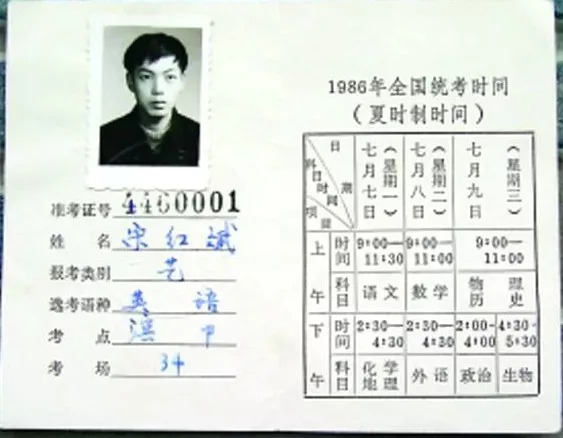 准考证号 4460001
姓 名 宋红斌
报考类别 艺
选考语种 英 语
考 点 溟中
考 场 34
1986年全国统考时间
（夏时制时间）
日 期 科目 时间 项目 七月七日（星期一） 七月八日（星期二） 七月九日（星期三）
上午 时间 9:00—11:30 9:00—11:00 9:00—11:00
科目 语文 数学 物理 历史
下午 时间 2:30—4:30 2:30—4:30 2:00-4:00 4:30-5:30
科目 化学 地理 外语 政治 生物